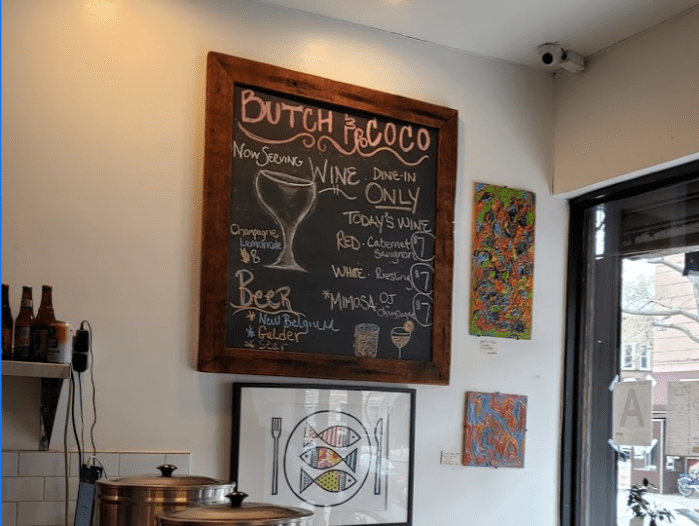 BUTCH & COCO
NOW SERVING
WINE. DINE-IN
ONLY
TODAY'S WINE
RED. Cabernet $7
Sauvignon
WHITE. Riesling $7
*MIMOSA. OJ $7
& Champagne
Champagne
Lemonade
$8
Beer
* New Belgium
* Gulder
* Star
A